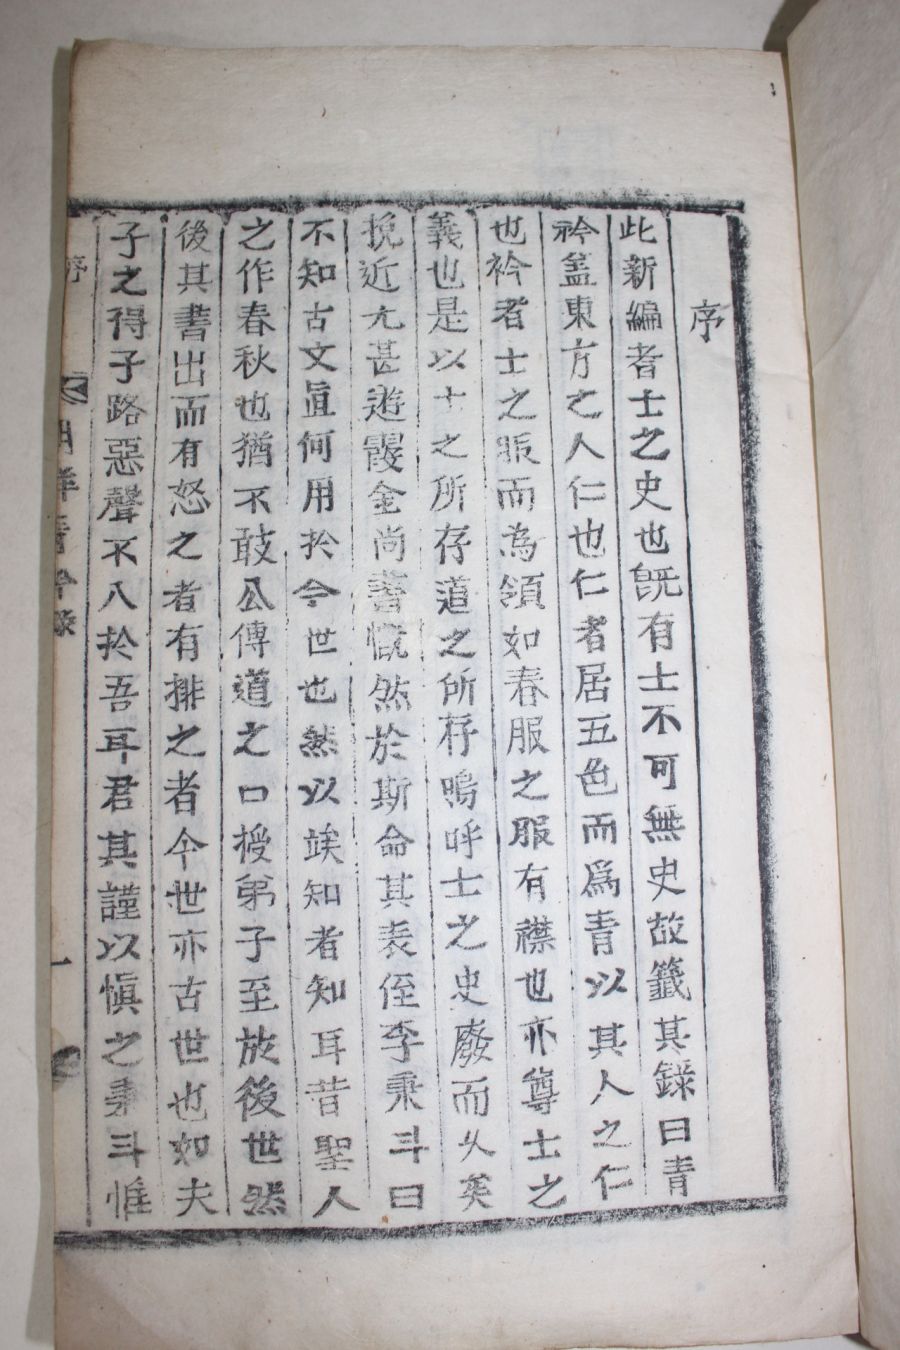 序
此新編者士之史也旣有士不可無史故籤其錄曰青
衿盖東方之人仁也仁者居五色而爲青以其人之仁
也衿者士之服而為領如春服之服有襟也亦尊士之
義也是以士之所存道之所存嗚呼士之史廢而久矣
挽近尤甚遊霞金尚書慨然於斯命其表侄李秉斗曰
不知古文眞何用於今世也然以竢知者知耳昔聖人
之作春秋也猶不敢公傳道之口授弟子至於後世然
後其書出而有怒之者有排之者今世亦古世也如夫
子之得子路惡聲不入於吾耳君其謹以愼之秉斗惟
序
青衿錄
一